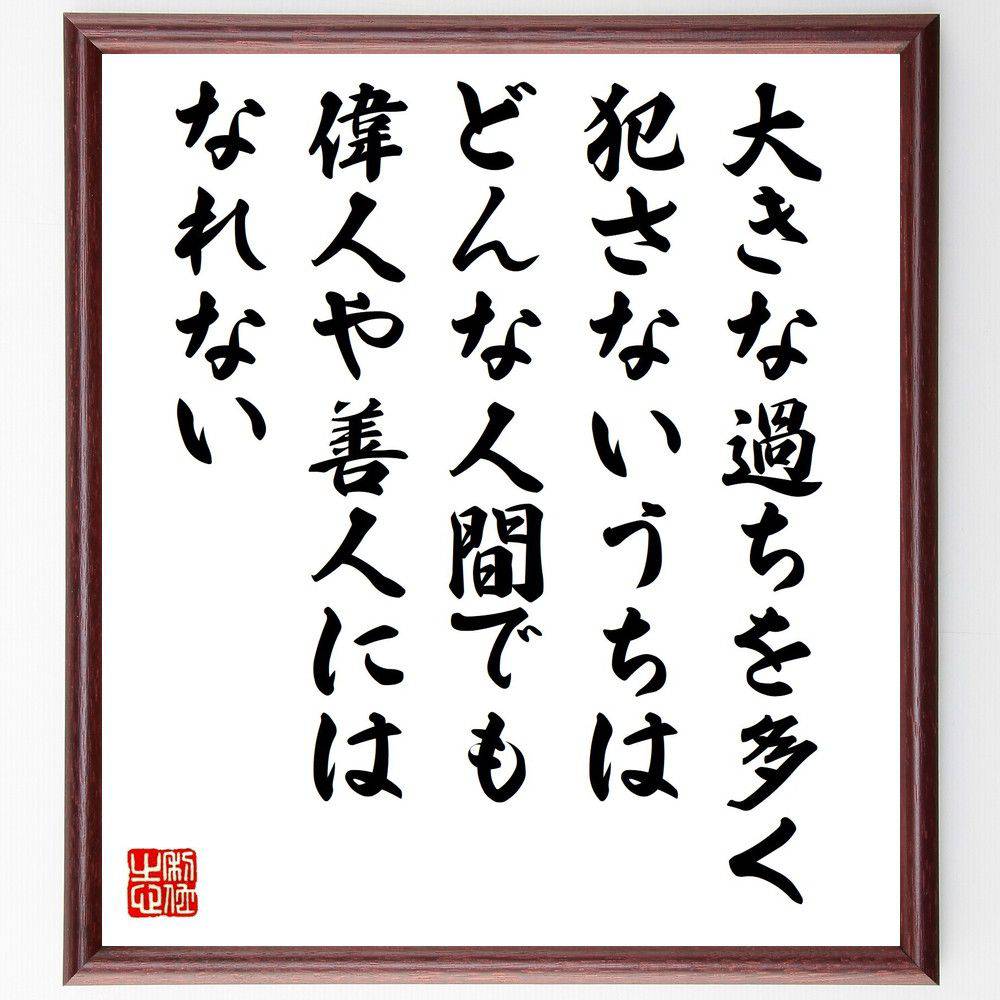 大きな過ちを多く
犯さないうちは
どんな人間でも
偉人や善人には
なれない